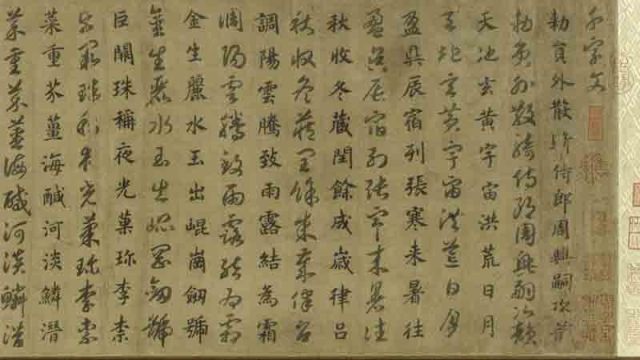 千字文
勑員外散騎侍郎周興嗣次韻
勑員外散騎侍郎周興嗣次韻
天地玄黃宇宙洪荒日月
天地玄黃宇宙洪荒日月
盈昃辰宿列張寒来暑往
盈昃辰宿列張寒来暑往
秋收冬藏閏餘成歲律呂
秋收冬藏閏餘成歲律呂
調陽雲騰致雨露結為霜
調陽雲騰致雨露結為霜
金生麗水玉出崐崗劒號
金生麗水玉出崐崗劒號
巨闕珠稱夜光菓珍李柰
巨闕珠稱夜光菓珍李柰
菜重芥薑海醎河淡鱗潛
菜重芥薑海醎河淡鱗潛